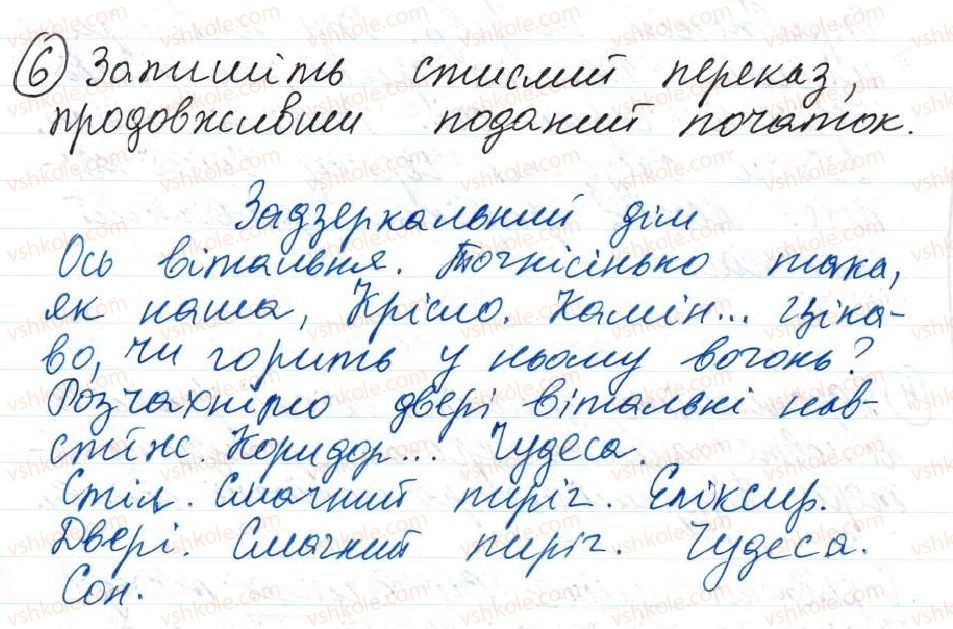 6 Запишіть стислий переказ,
продовживши поданий початок.
Задзеркальний дім
Ось вітальня. Точнісінько така,
як наша, Крісло. Камін... Ціка-
во, чи горить у ньому вогонь?
Розчахнімо двері вітальні нав-
стіж. Коридор... Чудеса.
Стіл. Смачний пиріг. Еліксир.
Двері. Смачний пиріг. Чудеса.
Сон.